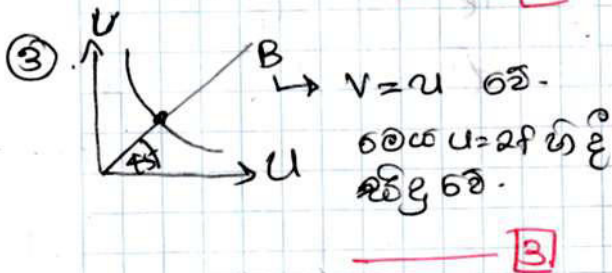 ③
V
B
45°
U
→ V = u වේ.
මෙය u = 2f හි දී
සිදු වේ.
3